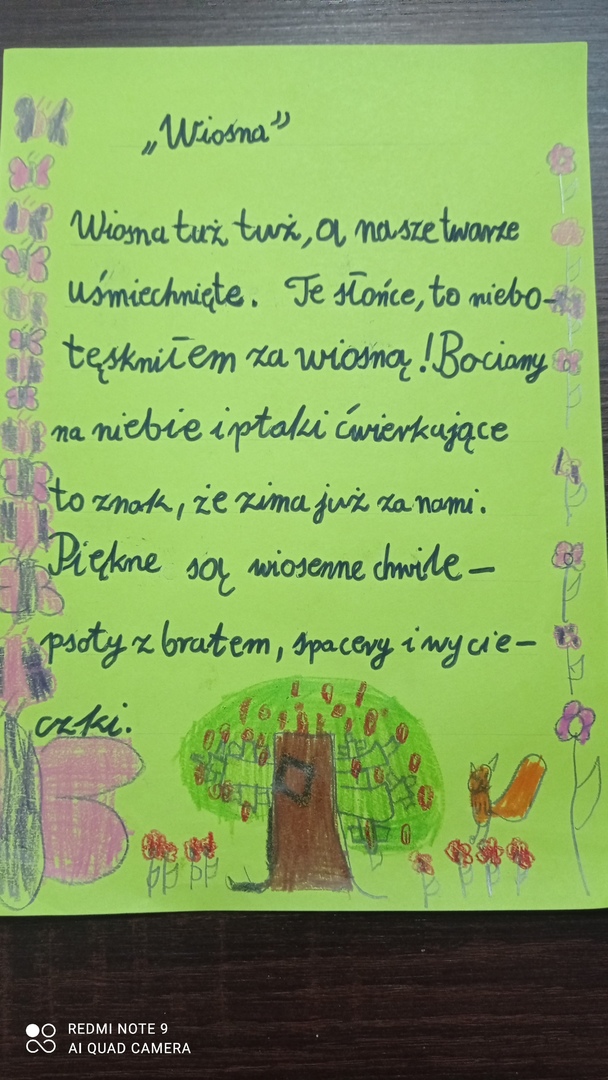 „Wiosna”
Wiosna tuż tuż, a nasze twarze
uśmiechnięte. Te słońce, to niebo-
tęskniłem za wiosną! Bociany
na niebie i ptaki ćwierkające
to znak, że zima już za nami.
Piękne są wiosenne chwile -
psoty z bratem, spacery i wycie-
czki.
REDMI NOTE 9
AI QUAD CAMERA